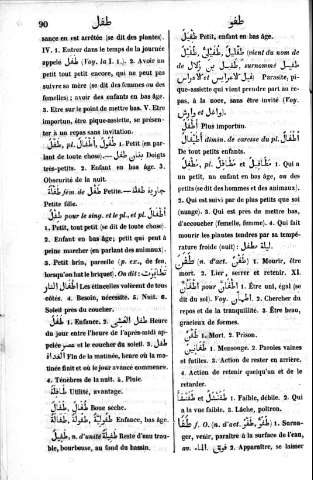 90 طفل
طفو
sance en est arrêtée (se dit des plantes).
IV. 1. Entrer dans le temps de la journée
appelé طَفَل (Voy. la I. 1.). 2. Avoir un
petit tout petit encore, qui ne peut pas
suivre sa mère (se dit des femmes ou des
femelles); avoir des enfants en bas âge.
3. Etre sur le point de mettre bas. V. Etre
importun, être pique-assiette, se présen-
ter à un repas sans invitation.
طِفْل, pl. أَطْفَال, طُفُول 1. Petit (en par-
lant de toute chose). Doigts
très-petits. 2. Enfant en bas âge. 3.
Obscurité de la nuit.
طِفْلَة fém. de طِفْل Petite. — جارية طفلة
Petite fille.
طِفْل pour le sing. et le pl., et pl. أَطْفَال
1. Petit, tout petit (se dit de toute chose).
2. Enfant en bas âge; petit qui peut à
peine marcher (en parlant des animaux).
3. Petit brin, parcelle (p. ex., de feu,
lorsqu'on bat le briquet). On dit : تطايرت
أطفال النار Les étincelles volèrent de tous
côtés. 4. Besoin, nécessité. 5. Nuit. 6.
Soleil près du coucher.
طَفَل 1. Enfance. 2. طفل العشى Heure
du jour entre l'heure de l'après-midi ap-
pelée عصر et le coucher du soleil. 3. طفل
الغداة Fin de la matinée, heure où la ma-
tinée finit et où le jour avance commence.
4. Ténèbres de la nuit. 5. Pluie.
Utilité, avantage.
طُفَال, طَفَال Boue sèche.
Enfance, bas âge.
طَفِيل, n. d'unité طَفِيلَة Reste d'eau trou-
ble, bourbeuse, au fond du bassin.
طُفَيْل Petit, enfant en bas âge.
(vient du nom de
طفيل بن زلال de surnommé طفيل
الاعراس ou العرائس Parasite, pi-
que-assiette qui vient prendre part au re-
pas, à la noce, sans être invité (Voy.
وارش et واغل).
Plus importun.
dimin. de caresse du pl. أَطْفَال
De tout petits enfants.
مُطْفِل, pl. مَطَافِل et مَطَافِيل 1. Qui a
un petit, un enfant en bas âge, ou des
petits (se dit des hommes et des animaux).
2. Qui est suivi par de plus petits que soi
(nuage). 3. Qui est près de mettre bas,
d'accoucher (femelle, femme). 4. Qui fait
mourir les plantes tendres par sa tempé-
rature froide (nuit) : ليلة مطفل.
طَفَنَ (n. d'act. طَفْن) 1. Mourir, être
mort. 2. Lier, serrer et retenir. XI.
1. Être uni, égal (se
dit du sol) Voy. 2. Chercher du
repos et de la tranquilité. 3. Être beau,
gracieux de formes.
طَفْن 1. Mort. 2. Prison.
1. Mensonge. 2. Paroles vaines
et futiles. 3. Action de rester en arrière.
4. Action de retenir quelqu'un et de le
retarder.
طَفَنْشَأ et طَفَنْشَل 1. Faible, débile. 2. Qui
a la vue faible. 3. Lâche, poltron.
طَفَا f. O. (n. d'act. طَفْو) 1. Surna-
ger, venir, paraître à la surface de l'eau,
av. فوق الماء. 2. Apparaître, se laisser